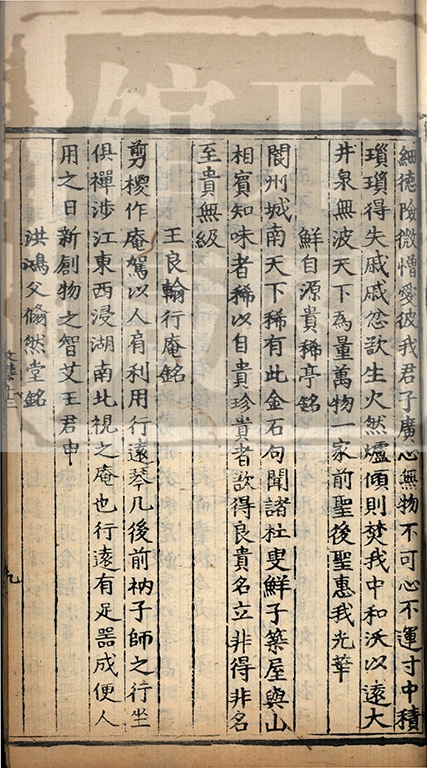 細德險微憎愛彼我君子廣心無物不可心不運寸中積
瑣瑣得失戚戚忿欲生火然爐傾則焚我中和沃以遠大
井泉無波天下為量萬物一家前聖後聖惠我光華
鮮自源貴稀亭銘
閬州城南天下稀有此金石句聞諸杜叟鮮子築屋與山
相賓知味者稀以自貴珍貴者欲得良貴名立非得非名
至貴無級
王良翰行庵銘
剪椶作庵駕以人肩利用行遠琴几後前衲子師之行坐
俱禪涉江東西浸湖南北視之庵也行遠有足器成便人
用之日新創物之智艾王君中
洪鴻父翛然堂銘
九